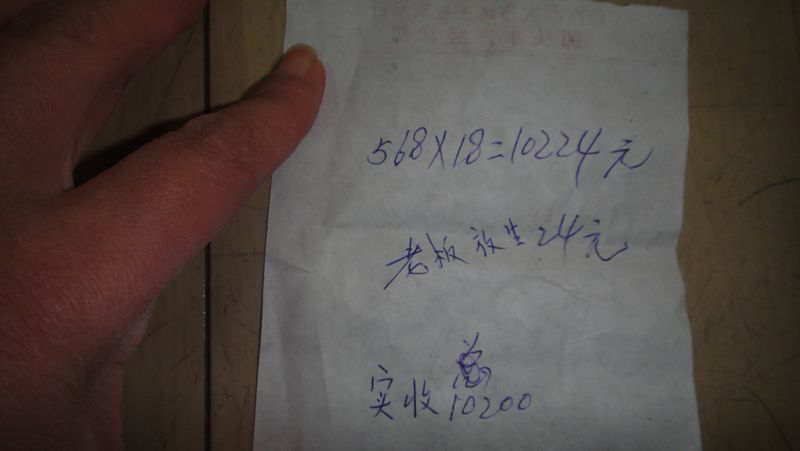 568×18=10224元
老板放生24元
总
实收10200